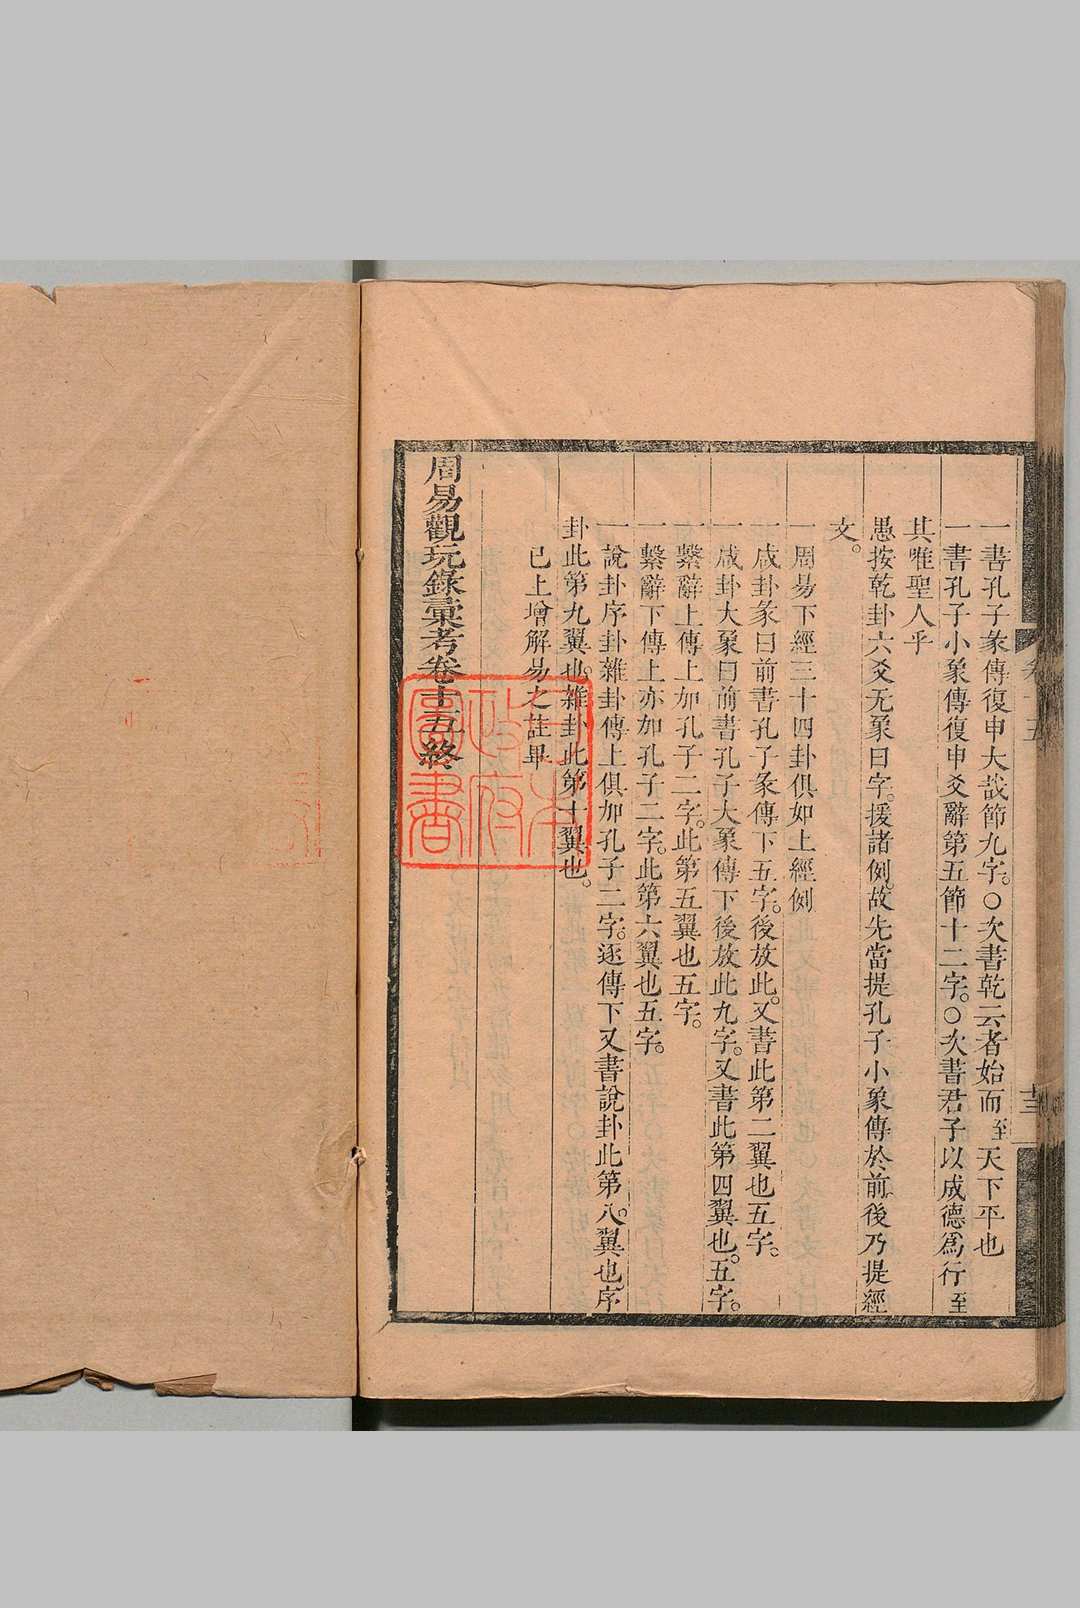 一書孔子彖傳復申大哉節九字。○次書乾云者始而至天下平也
一書孔子小象傳復申爻辭第五節十二字。○次書君子以成德為行至
其唯聖人乎
愚按乾卦六爻无象曰字。援諸例。故先當提孔子小象傳於前。後乃提經
文。
一周易下經三十四卦俱如上經例
一咸卦彖曰前書孔子彖傳下五字。後放此。又書此第二翼也五字。
一咸卦大象曰前書孔子大象傳下後放此九字。又書此第四翼也。五字。
一繫辭上傳上加孔子二字。此第五翼也五字。
一繫辭下傳上亦加孔子二字。此第六翼也五字。
一說卦序卦雜卦傳上俱加孔子二字。逐傳下又書說卦此第八。翼也序
卦此第九翼也。雜卦此第十翼也。
已上增解易之註畢
周易觀玩錄彙考卷十五終
卷十五
圖書